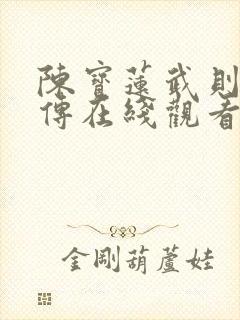 陳寶蓮武則
傳在綫觀看
金剛葫蘆娃